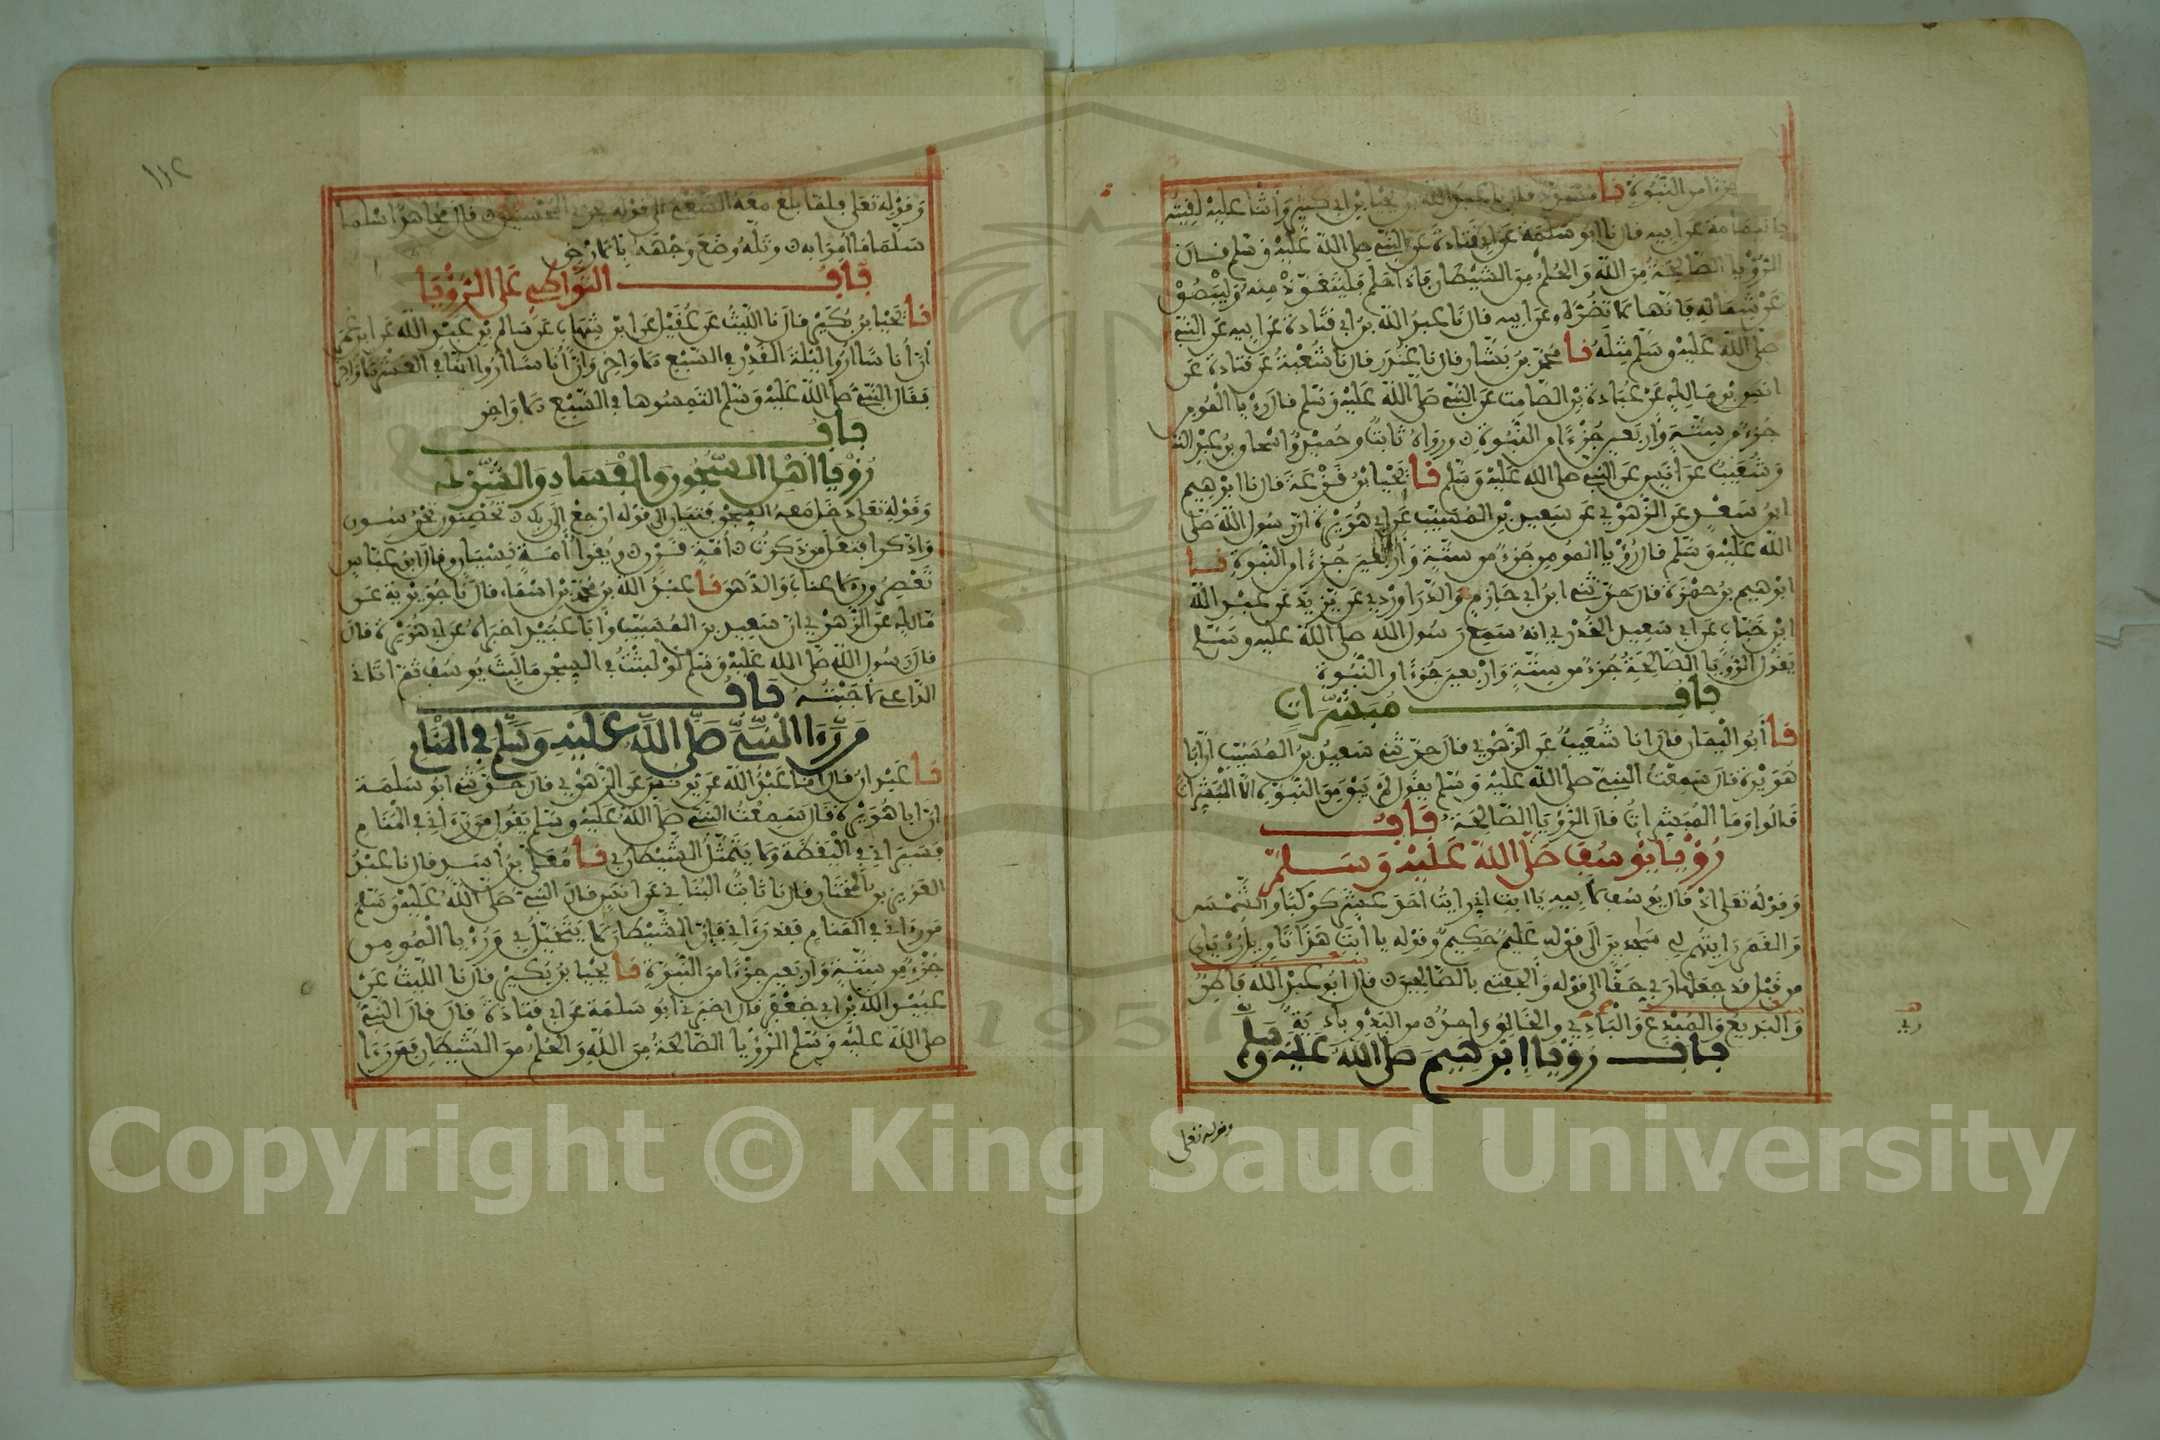 جزءا من النبوة نا مسدد قال نا عبد الله بن يحيى بن ابي كثير واثنا عليه لفيته
باليمامة عن ابيه قال نا ابو سلمة عن ابي قتادة عن النبي صلى الله عليه وسلم قال
الرؤيا الصالحة من الله والحلم من الشيطان فاذا حلم فليتعوذ منه وليبصق
عن شماله فانها لا تضره وعن ابيه قال نا عبد الله بن ابي قتادة عن ابيه عن النبي
صلى الله عليه وسلم مثله نا محمد بن بشار قال نا غندر قال نا شعبة عن قتادة عن
انس بن مالك عن عبادة بن الصامت عن النبي صلى الله عليه وسلم قال رءيا المومن
جزء من ستة واربعين جزءا من النبوة ورواه ثابت وحميد واسحاق بن عبد الله
وشعيب عن انس عن النبي صلى الله عليه وسلم نا يحيا بن قزعة قال نا ابرهيم
ابن سعد عن الزهري عن سعيد بن المسيب عن ابي هريرة ان رسول الله صلى
الله عليه وسلم قال رؤيا المومن جزء من ستة واربعين جزءا من النبوة نا
ابرهيم بن حمزة قال حدثني ابن ابي حازم والدراوردي عن يزيد عن عبد الله
ابن خباب عن ابي سعيد الخدري انه سمع رسول الله صلى الله عليه وسلم
يقول الرؤيا الصالحة جزء من ستة واربعين جزءا من النبوة
باب مبشرات
نا ابو اليمان قال انا شعيب عن الزهري قال حدثني سعيد بن المسيب ان ابا
هريرة قال سمعت النبي صلى الله عليه وسلم يقول لم يبق من النبوة الا المبشرات
قالوا وما المبشرات قال الرؤيا الصالحة باب
رؤيا يوسف صلى الله عليه وسلم
وقوله تعلى اذ قال يوسف لابيه يا ابت اني رايت احد عشر كوكبا والشمس
والقمر رايتهم لي سجدين الى قوله عليم حكيم وقوله يا ابت هذا تاويل رءياي
من قبل قد جعلها ربي حقا الى قوله والحقني بالصالحين قال ابو عبد الله فاطر
والبديع والمبدع والبادي والخالق واحد من البدو بادية
باب رؤيا ابرهيم صلى الله عليه وسلم
وقوله تعلى
١١٢
وقوله تعلى فلما بلغ معه السعي الى قوله نجزي المحسنين قال مجاهد اسلما
سلما ما امرا به وتله وضع وجهه بالارض
باب التواطي على الرؤيا
نا يحيا بن بكير قال نا الليث عن عقيل عن ابن شهاب عن سالم بن عبد الله عن ابن عمر
ان اناسا اروا ليلة القدر في السبع الاواخر وان اناسا اروا انها في العشر الاواخر
فقال النبي صلى الله عليه وسلم التمسوها في السبع الاواخر
باب
رؤيا اهل السجون والفساد والشرك
وقوله تعلى ودخل معه السجن فتيان الى قوله ارجع الى ربك تحصنون تحرسون
وادكر افتعل من ذكرت امة قرن ويقرا امه نسيان وقال ابن عباس
تعصرون الاعناب والدهن نا عبد الله بن محمد بن اسماء قال نا جويرية عن
مالك عن الزهري ان سعيد بن المسيب وابا عبيد اخبراه عن ابي هريرة قال
قال رسول الله صلى الله عليه وسلم لو لبثت في السجن ما لبث يوسف ثم اتاني
الداعي لاجبته باب
من رءا النبي صلى الله عليه وسلم في المنام
نا عبدان قال انا عبد الله عن يونس عن الزهري قال حدثني ابو سلمة
ان ابا هريرة قال سمعت النبي صلى الله عليه وسلم يقول من رءاني في المنام
فسيراني في اليقظة ولا يتمثل الشيطان بي نا معلى بن اسد قال نا عبد
العزيز بن المختار قال نا ثابت البناني عن انس قال النبي صلى الله عليه وسلم
من رءاني في المنام فقد رءاني فان الشيطان لا يتخيل بي ورءيا المومن
جزء من ستة واربعين جزءا من النبوة نا يحيا بن بكير قال نا الليث عن
عبيد الله بن ابي جعفر قال اخبرني ابو سلمة عن ابي قتادة قال قال النبي
صلى الله عليه وسلم الرؤيا الصالحة من الله والحلم من الشيطان فمن رءا
1957
Copyright © King Saud University